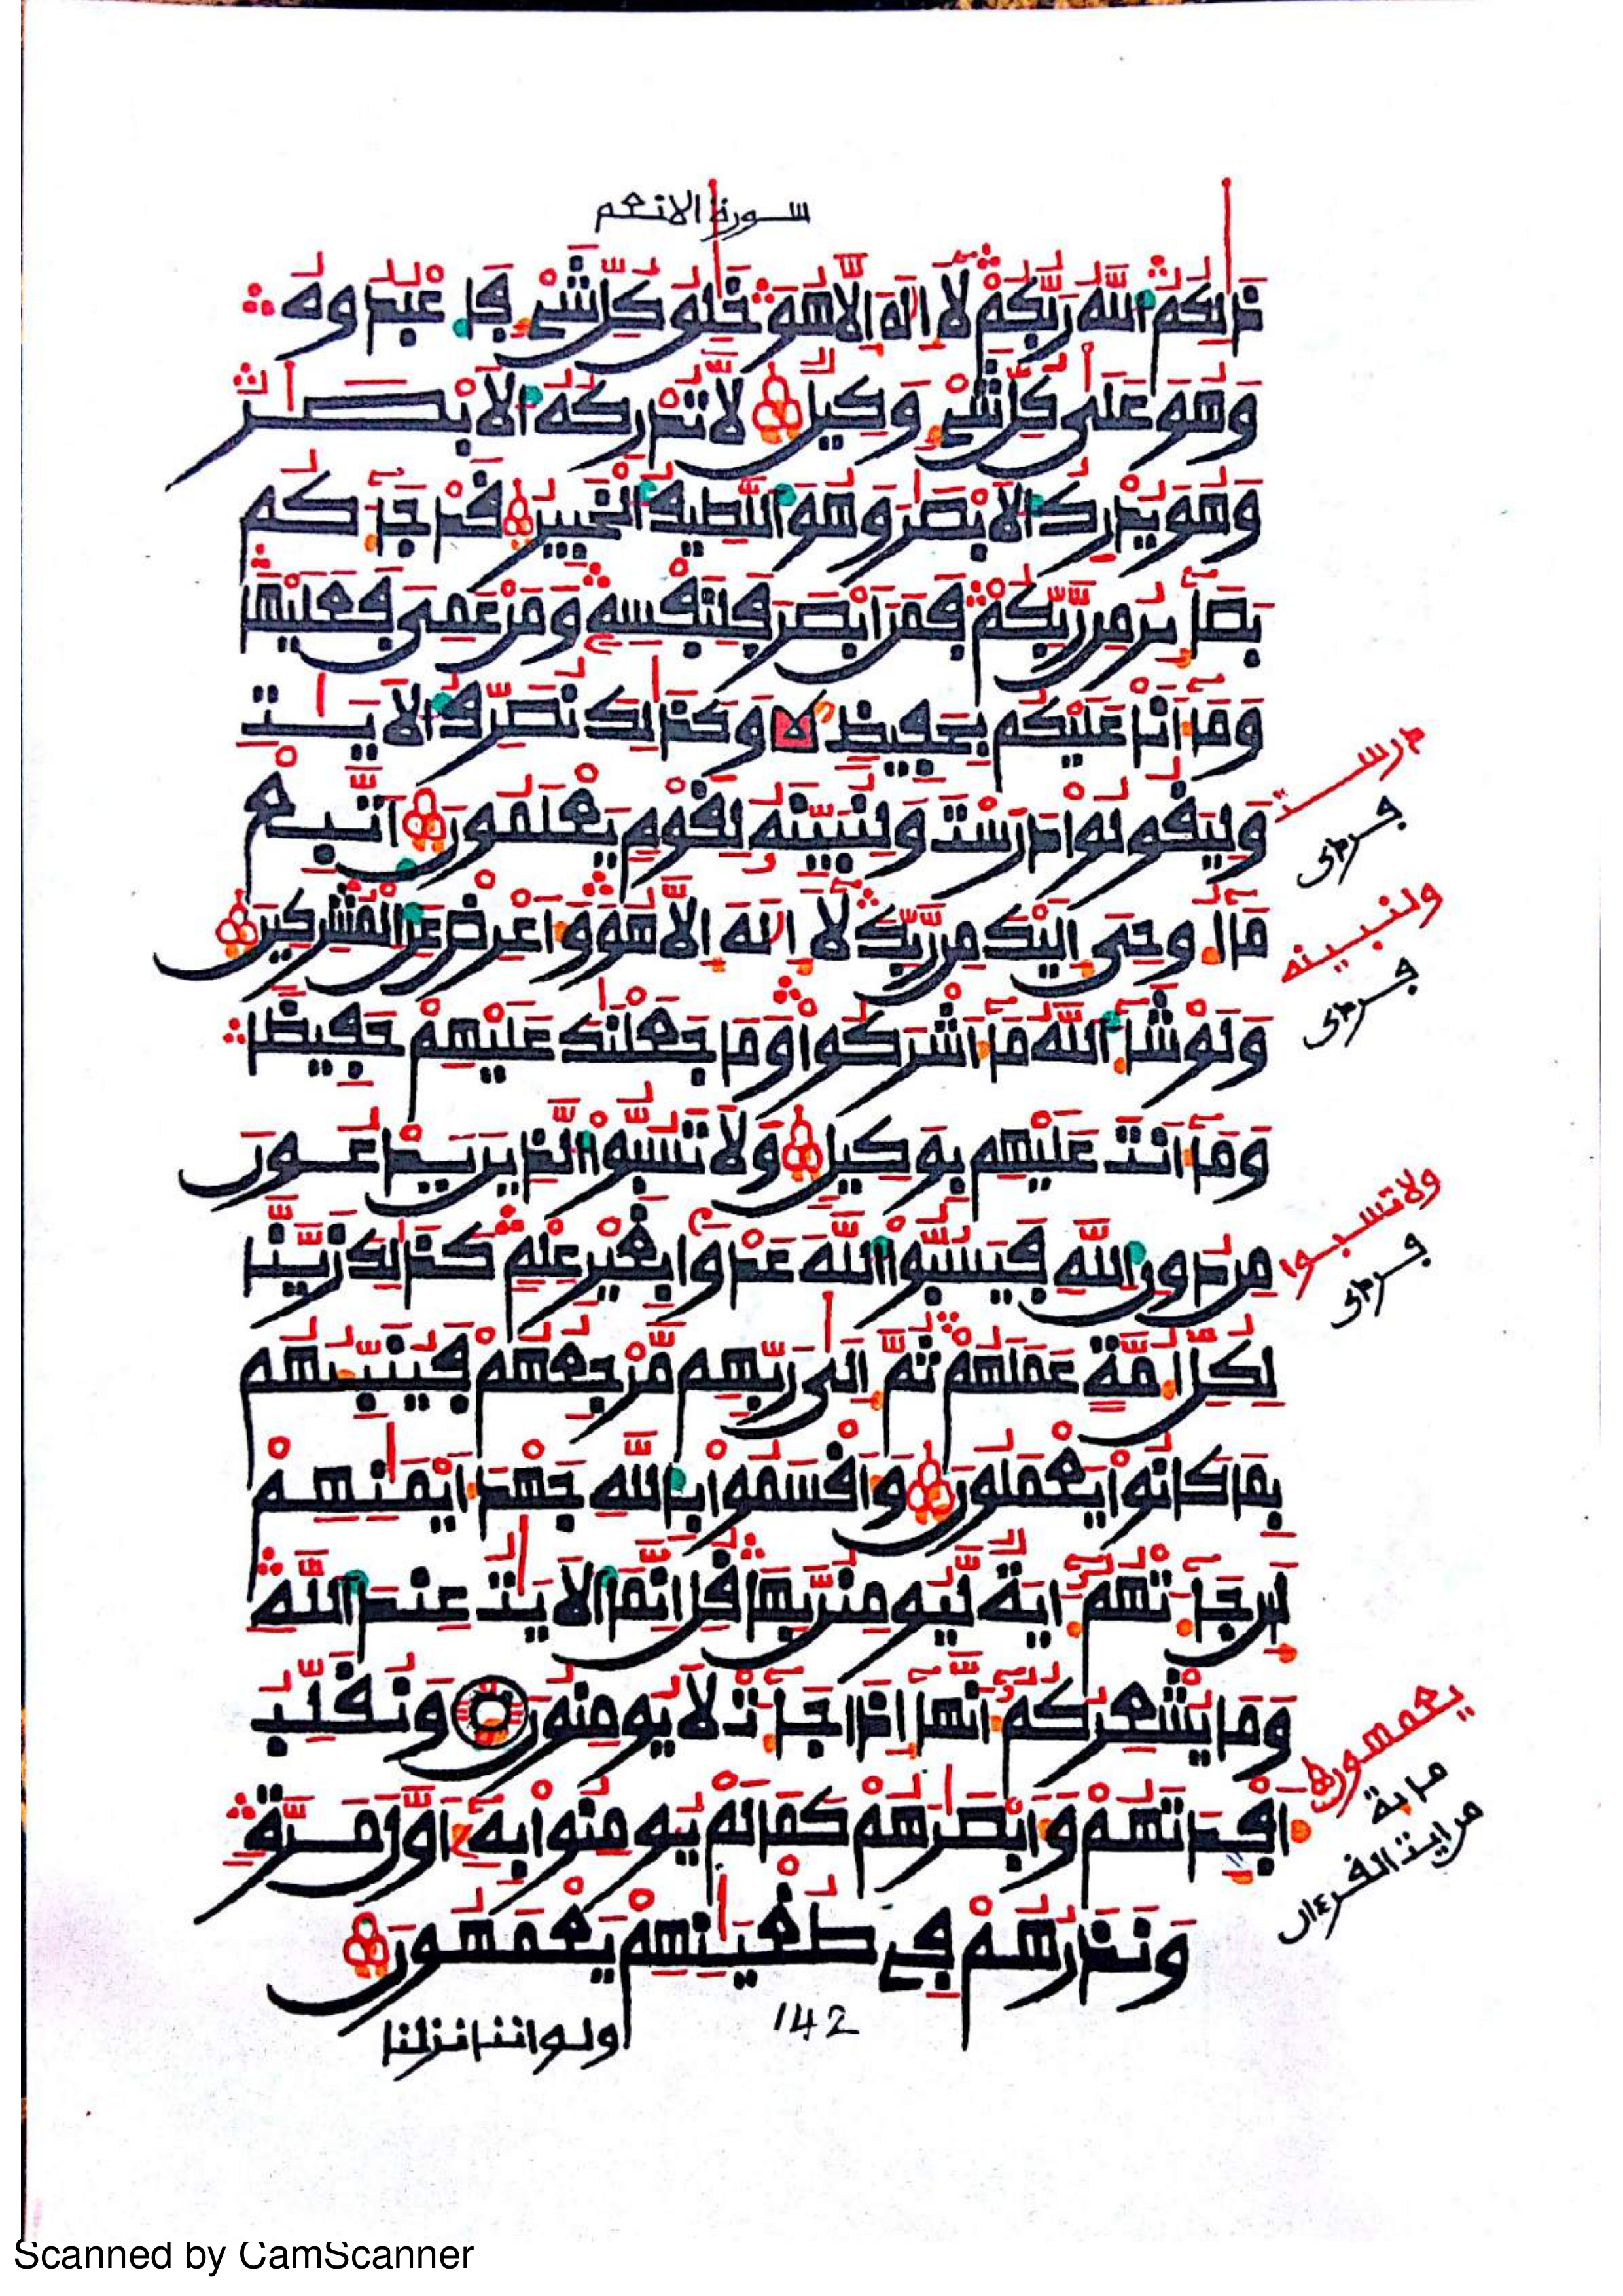 سورة الانعم
ذَٰلِكُمُ اللَّهُ رَبُّكُمْ لَا إِلَٰهَ إِلَّا هُوَ خَٰلِقُ كُلِّ شَيْءٍ فَاعْبُدُوهُ
وَهُوَ عَلَىٰ كُلِّ شَيْءٍ وَكِيلٌ لَا تُدْرِكُهُ الْأَبْصَٰرُ
وَهُوَ يُدْرِكُ الْأَبْصَٰرَ وَهُوَ اللَّطِيفُ الْخَبِيرُ قَدْ جَآءَكُم
بَصَآئِرُ مِن رَّبِّكُمْ فَمَنْ أَبْصَرَ فَلِنَفْسِهِ وَمَنْ عَمِيَ فَعَلَيْهَا
وَمَآ أَنَا عَلَيْكُم بِحَفِيظٍ وَكَذَٰلِكَ نُصَرِّفُ الْأَيَٰتِ
وَلِيَقُولُوا دَرَسْتَ وَلِنُبَيِّنَهُ لِقَوْمٍ يَعْلَمُونَ اتَّبِعْ
مَآ أُوحِيَ إِلَيْكَ مِن رَّبِّكَ لَآ إِلَٰهَ إِلَّا هُوَ وَأَعْرِضْ عَنِ الْمُشْرِكِينَ
وَلَوْ شَآءَ اللَّهُ مَآ أَشْرَكُوا وَمَا جَعَلْنَٰكَ عَلَيْهِمْ حَفِيظًا
وَمَآ أَنتَ عَلَيْهِم بِوَكِيلٍ وَلَا تَسُبُّوا الَّذِينَ يَدْعُونَ
مِن دُونِ اللَّهِ فَيَسُبُّوا اللَّهَ عَدْوًا بِغَيْرِ عِلْمٍ كَذَٰلِكَ زَيَّنَّا
لِكُلِّ أُمَّةٍ عَمَلَهُمْ ثُمَّ إِلَىٰ رَبِّهِم مَّرْجِعُهُمْ فَيُنَبِّئُهُم
بِمَا كَانُوا يَعْمَلُونَ وَأَقْسَمُوا بِاللَّهِ جَهْدَ أَيْمَٰنِهِمْ
لَئِن جَآءَتْهُمْ ءَايَةٌ لَّيُومِنُنَّ بِهَا قُلْ إِنَّمَا الْأَيَٰتُ عِندَ اللَّهِ
وَمَا يُشْعِرُكُمْ أَنَّهَا إِذَا جَآءَتْ لَا يُومِنُونَ وَنُقَلِّبُ
أَفْـِٔدَتَهُمْ وَأَبْصَٰرَهُمْ كَمَا لَمْ يُومِنُوا بِهِ أَوَّلَ مَرَّةٍ
وَنَذَرُهُمْ فِي طُغْيَٰنِهِمْ يَعْمَهُونَ
142
ولو اننا نزلنا
درست
ولنبينه
ولاتسبوا
يعمهون
Scanned by CamScanner